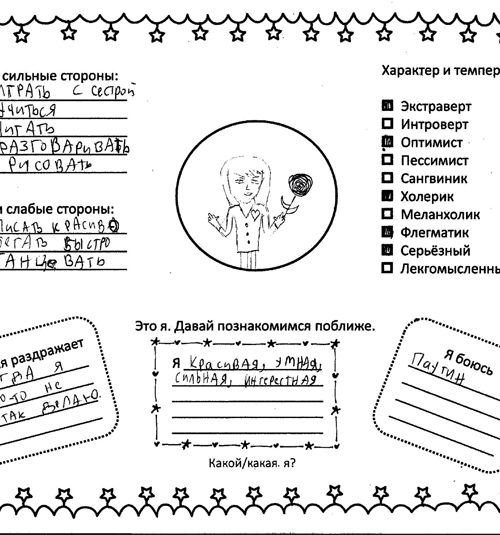 сильные стороны:
ИГРАТЬ С СЕСТРОЙ
УЧИТЬСЯ
ЧИТАТЬ
РАЗГОВАРИВАТЬ
РИСОВАТЬ
и слабые стороны:
ПИСАТЬ КРАСИВО
БЕГАТЬ БЫСТРО
ТАНЦЕВАТЬ
Характер и темпер
Экстраверт
Интроверт
Оптимист
Пессимист
Сангвиник
Холерик
Меланхолик
Флегматик
Серьёзный
Легкомысленны
Это я. Давай познакомимся поближе.
я раздражает
ГДА Я
ТО НЕ
ТАК ДЕЛАЮ.
Я КРАСИВАЯ, УМНАЯ,
СИЛЬНАЯ, ИНТЕРЕСТНАЯ
Какой/какая я?
Я боюсь
ПАУТИН